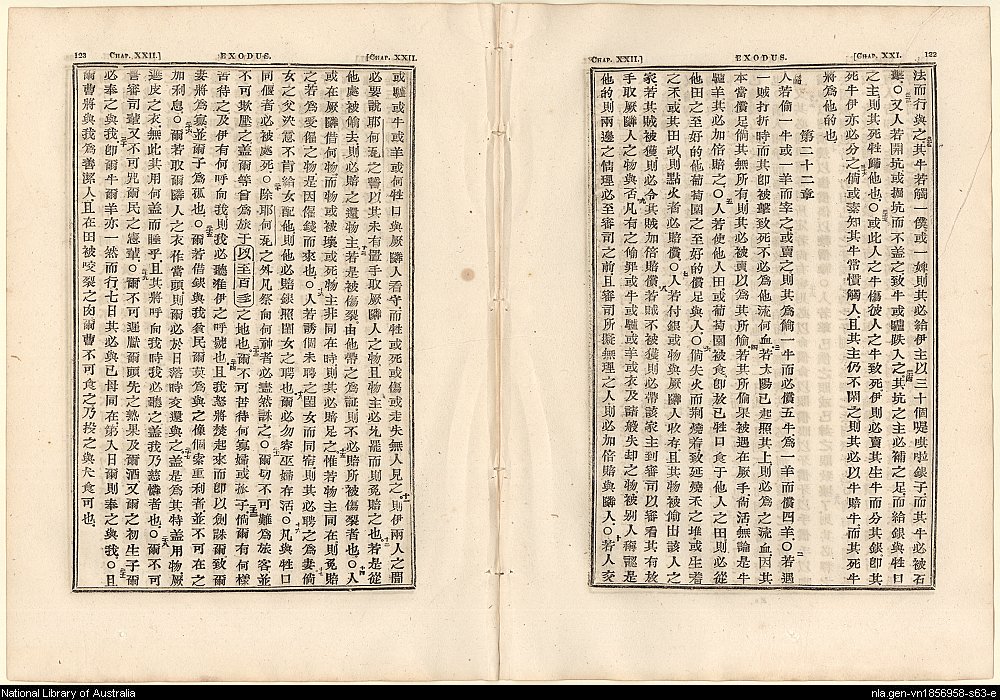 122
[CHAP. XXI.
EXODUS.
CHAP. XXII.]
法而行與之其牛若觸一僕或一婢則其必給伊主以三十個啦銀子而其牛必被石
斃○又人若開坑或掘坑而不蓋之致牛或驢跌入之其坑之主必補之足而給銀與牲口
之主則其死牲歸他也○或此人之牛傷彼人之牛致死伊則必賣其生牛而分其銀卽其
死牛伊亦必分之倘或素知其牛常慣觸人且其主仍不閑之則其必以牛賠牛而其死牛
將爲他的也
第二十二章
人若偷一牛或一羊而宰之或賣之則其爲偷一牛而必償五牛爲一羊而償四羊○若遇
一賊打折時而其卽被擊致死不必爲他流何血若太陽已起照其上則必爲之流血因其
本當償足倘其無所有則其必被賣以爲其所偷若其所偷果被遇在厥手尚活無論是牛
驢羊其必加倍賠之○人若使他人田或葡萄園被食卽放已牲口食于他人之田則必從
他田之至好的他葡萄園之至好的償足與人○倘失火而荊着致延燒禾之堆或生着
之禾或其田畝則點火者必賠償○人若付銀或物與厥隣人收存且其物被偷出該人之
家若其賊被獲則必令其賊加倍賠償若賊不被獲則必帶該家主到審司以審看其有放
手取厥隣人之物與否凡有之偷罪或牛或驢或羊或衣及諸般失却之物被別人稱認是
他的則兩邊之情理必至審司之前且審司所擬無理之人則必加倍賠與隣人○若人交
[CHAP. XXII.
EXODUS.
CHAP. XXII.]
123
或驢或牛或羊或何牲口與厥隣人看守而牲或死或傷或走失無人見之則伊兩人之間
必要說耶何瓦之誓以其未有置手取厥隣人之物且物主必允罷而則免賠之也若是從
他處被偷去則必賠之還物主若是被傷裂由他帶之爲証則不必賠所被傷裂者也○人
或在厥隣借何物而或被壞或死物主非同在時則其必賠足之惟若物主同在則其免賠
之若爲受僱之物是因僱錢而來也○人若誘個未聘之閨女而同宿則其必聘之爲妻倘
女之父決意不肯給女配他則他必賠銀照閨女之聘也爾必勿容巫婦存活○凡與牲口
同偃者必被處死○除耶何瓦之外凡祭向何神者必盡然誅之○爾切不可難爲旅客並
不可欺壓之蓋爾等曾爲旅于以至百多之地也爾不可苦待何寡婦或孤子倘爾有何樣
苦待之及伊有何呼向我則我必聽準伊之呼號也且我怒將焚起來而卽以劍誅爾致爾
妻將爲寡並爾子爲孤也○爾若借銀與我貧民爾莫爲與之像個索重利者並不可在之
加利息○爾若取爾隣人之衣作當頭則爾必於日落時交還與之蓋是爲其特蓋用物厥
遮皮之衣無此其用何蓋而睡乎且其將呼向我時我必聽之蓋我乃慈憐者也○爾不可
詈審司輩又不可咒爾民之憲輩○爾不可遲獻爾頭先之熟果及爾酒又爾之初生子爾
必奉之與我卽爾牛爾羊亦一然而行七日其必與已母同在第八日爾則奉之與我○且
爾曹將與我爲善潔人且在田被咬裂之肉爾曹不可食之乃投之與犬食可也
National Library of Australia
nla.gen-vn1856958-s63-e